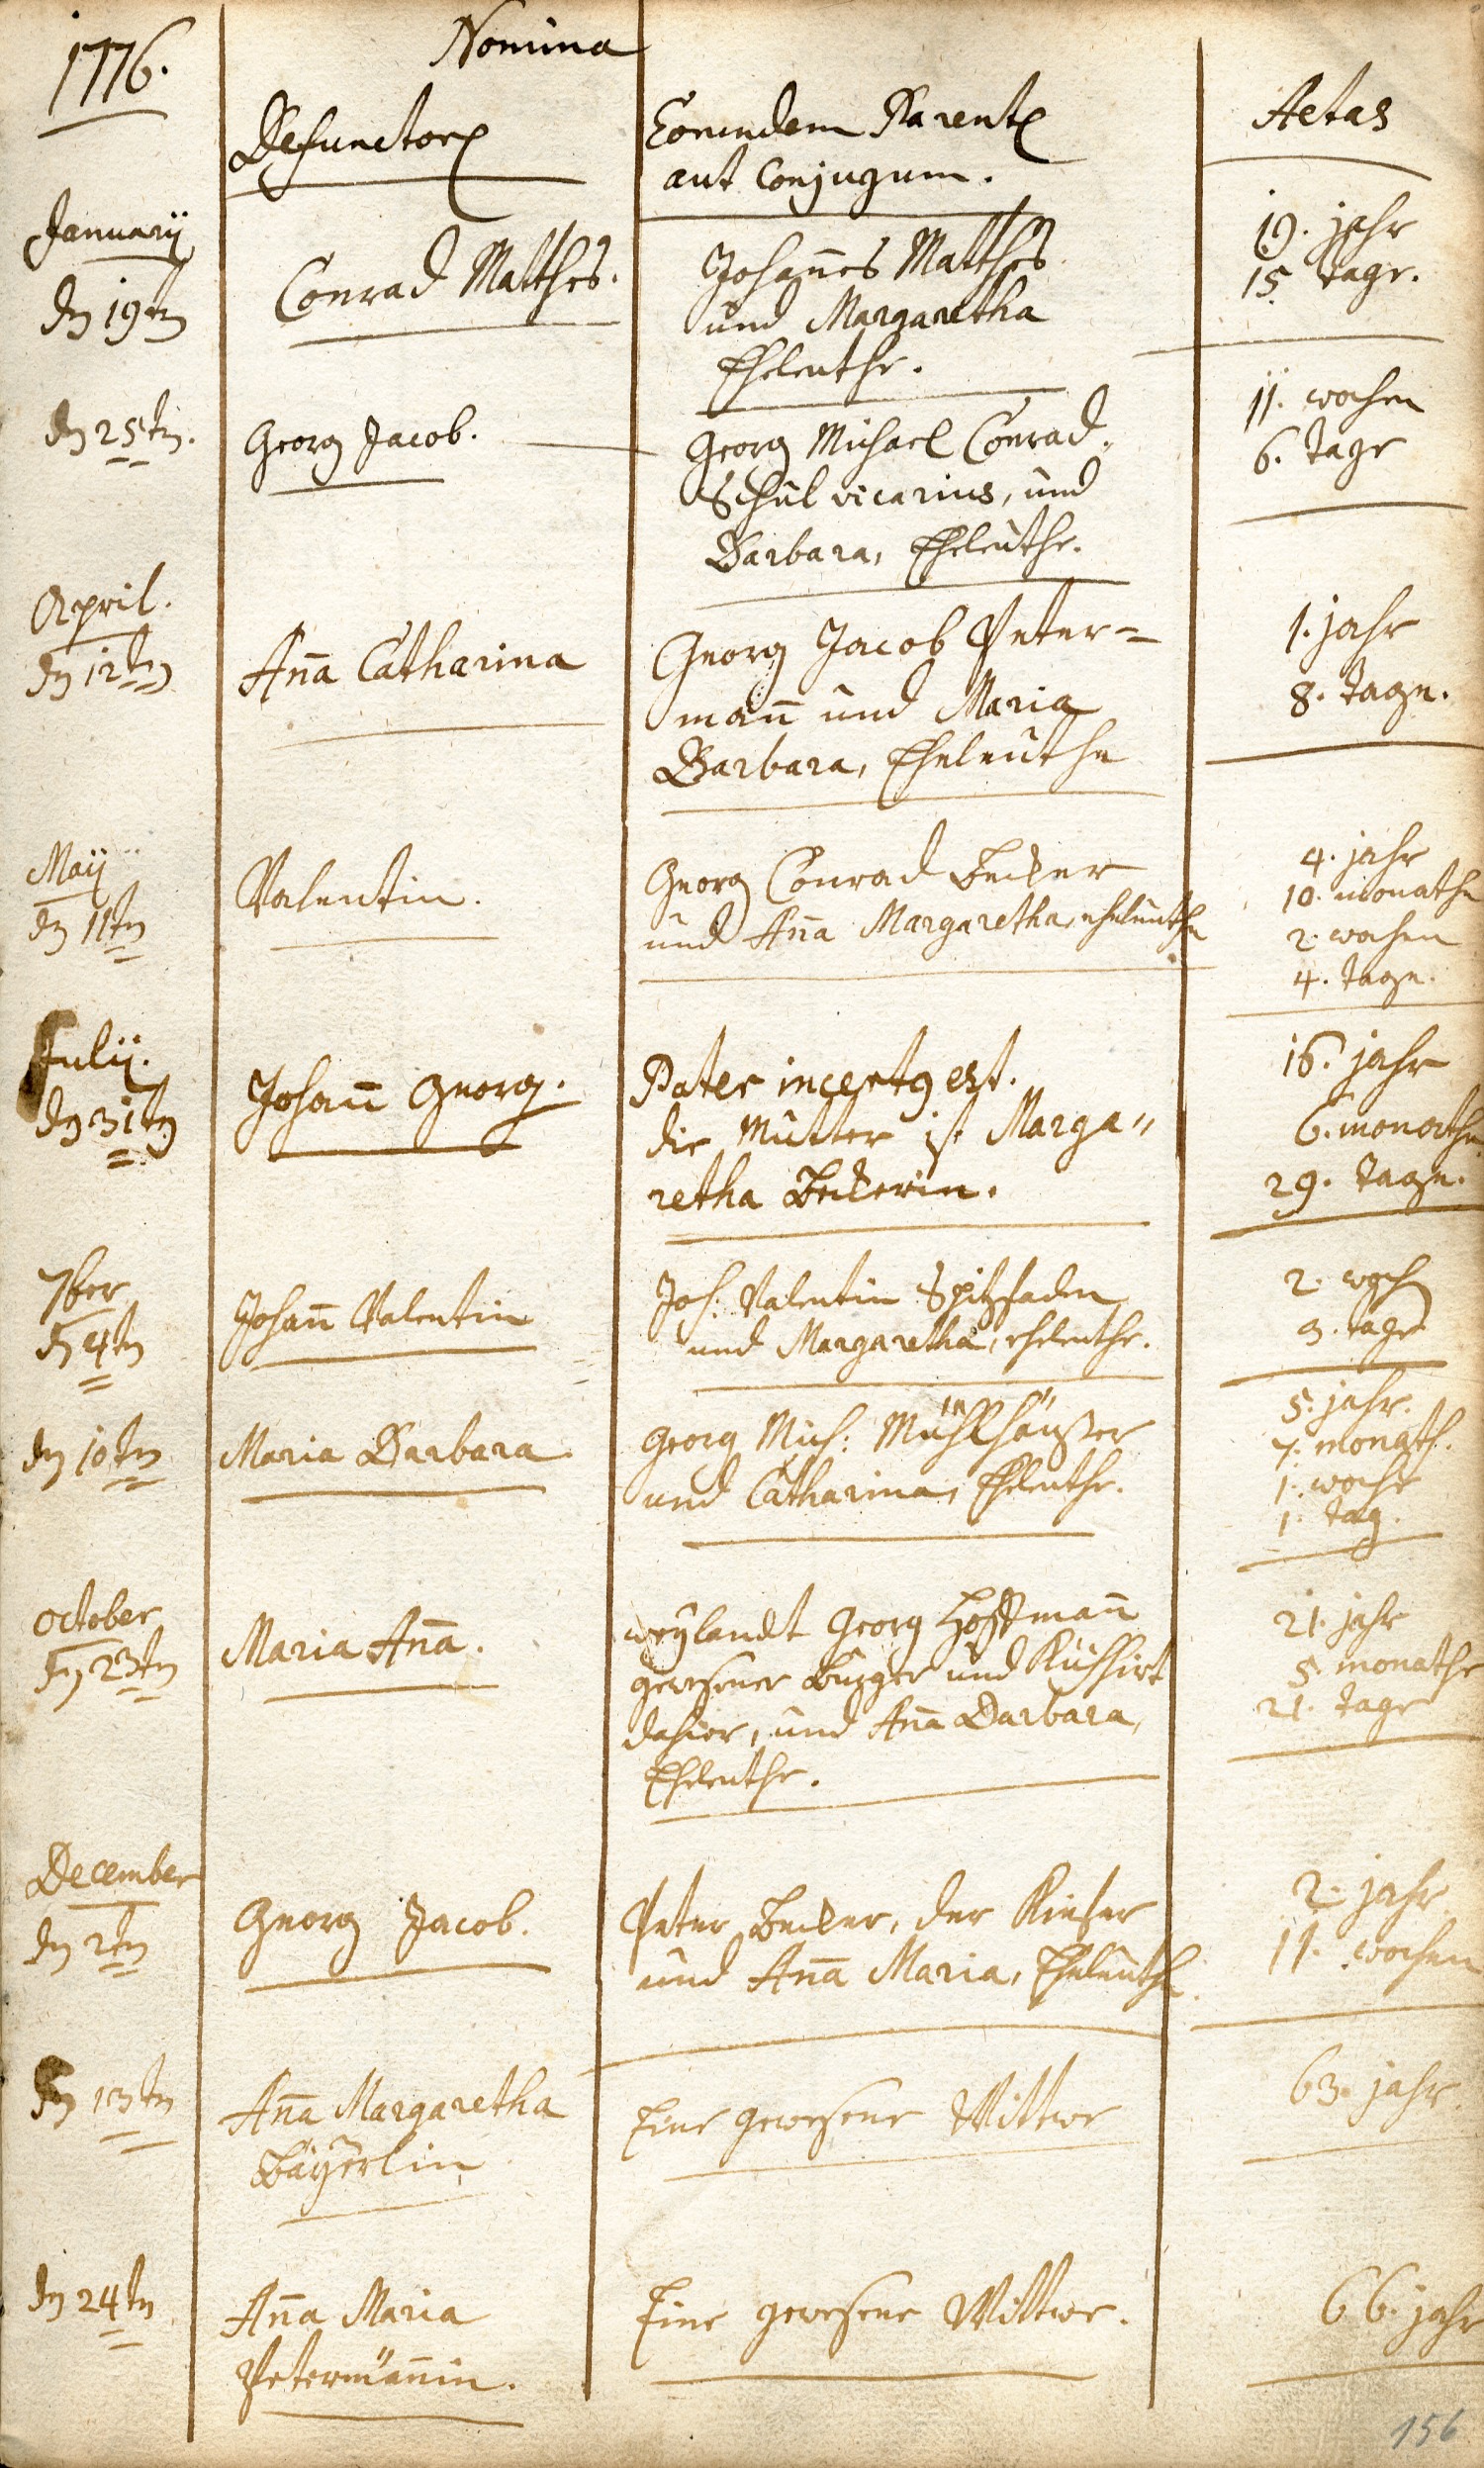 1776.
Nomina
Defunctor
Eorundem Parent
aut Conjugum.
Aetas
Januarij
den 19ten
Conrad Matthes.
Johañes Matthes
und Margaretha
Eheleuthe.
19. jahr
15. tage.
den 25ten.
Georg Jacob.
Georg Michael Conrad,
Schulvicarius, und
Barbara, Eheleuthe.
11. wochen
6. tage
April.
den 12ten
Añа Catharina
Georg Jacob Peter=
mañ und Maria
Barbara, Eheleuthe
1. jahr
8. tage.
Maij
den 11ten
Valentin.
Georg Conrad Becker
und Aña Margaretha, eheleuthe
4. jahr
10. monathe
2. wochen
4. tage.
Julij.
den 31ten
Johañ Georg.
Pater incert9 est.
die Mutter ist Marga"
retha Beckerin.
16. jahr
6. monathe
29. tage.
7ber
den 4ten
Johañ Valentin
Joh. Valentin Spitzfaden
und Margaretha, eheleuthe.
2. woch
3. tage
den 10ten
Maria Barbara
Georg Mich: Mühlhäußer
und Catharina, Eheleuthe.
5. jahr.
7. monath.
1. woche
1. tag.
October
den 23ten
Maria Aña.
weylandt Georg Hoffmañ
gewesener burger und Kühhirt
dahier, und Aña Barbara,
Eheleuthe.
21. jahr
5. monathe
21. tage
December
den 2ten
Georg Jacob.
Peter Becker, der Kiefer
und Aña Maria, Eheleuthe.
2. jahr
11. wochen
den 13ten
Aña Margaretha
Bäyerlin
Eine gewesene Wittwe
63. jahr.
den 24ten
Aña Maria
Petermäñin.
Eine gewesene Wittwe.
66. jahr
156